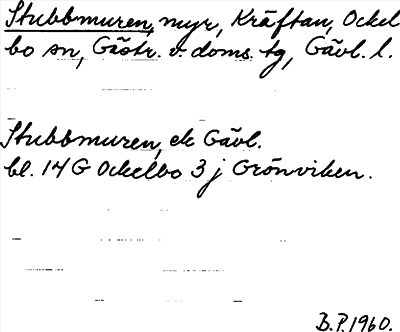 Stubbmuren, myr, Kräftan, Ockel
bo sn, Gästr. v. doms. tg, Gävl. l.
Stubbmuren, ek Gävl.
bl. 14 G Ockelbo 3 j Grönviken.
B.P. 1960.